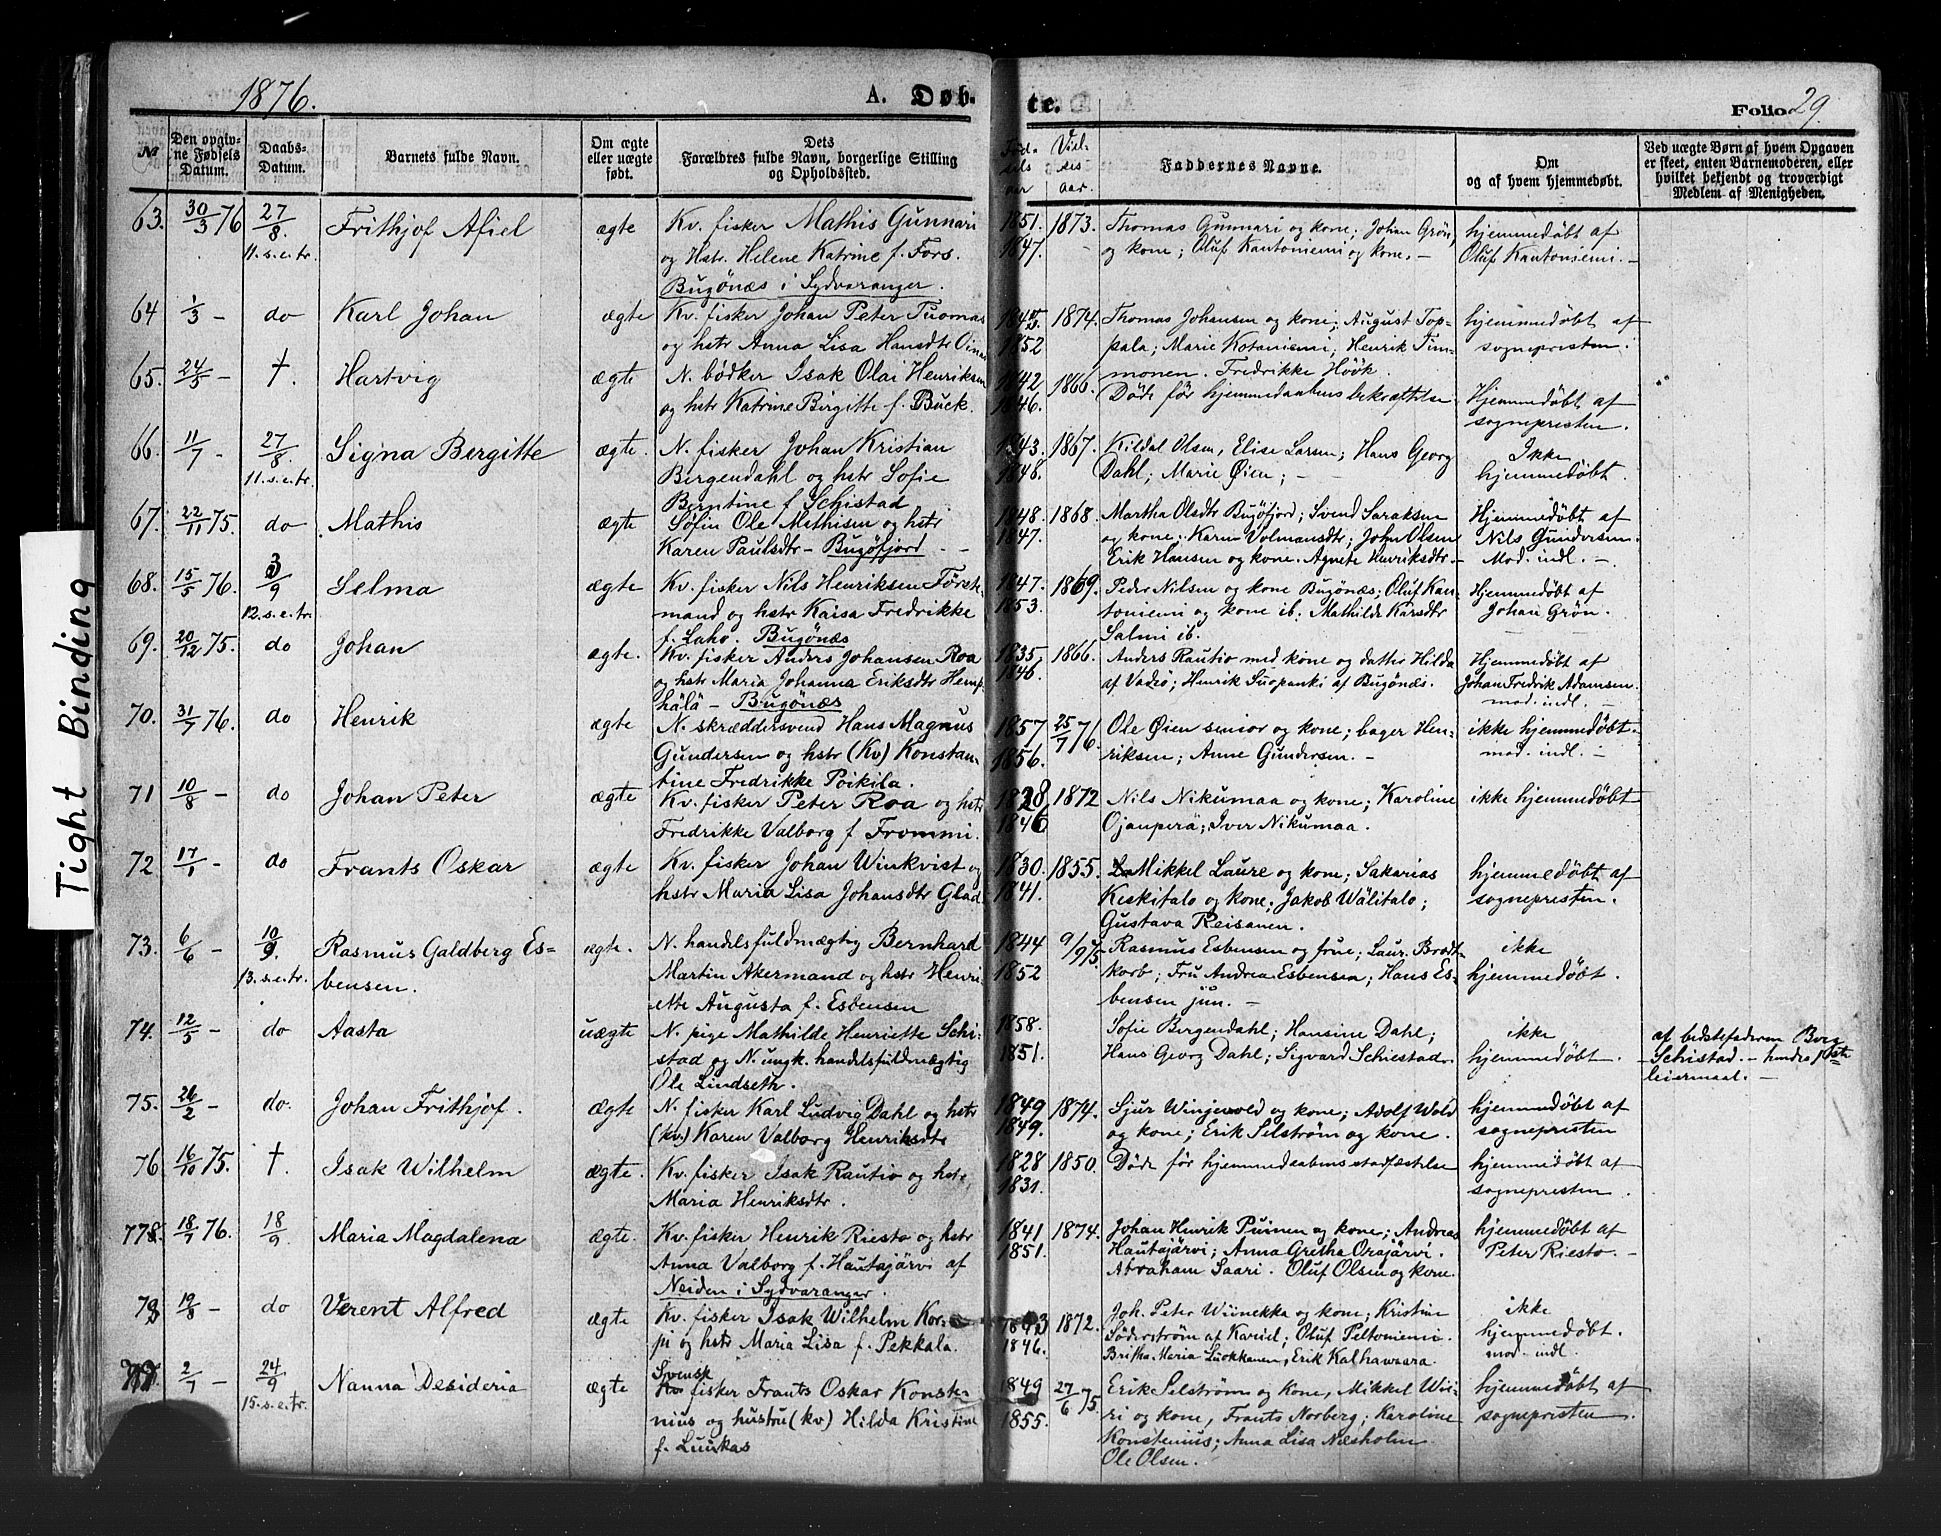 1876.
A. Døb-
te.
Folio 29.
Tight Binding
№
Den opgiv-
ne Fødsels
Datum.
Daabs-
Datum.
Barnets fulde Navn.
Om ægte
eller uægte
født.
Dets
Forældres fulde Navn, borgerlige Stilling
og Opholdssted.
Føds-
els
aar
Viel-
ses
aar.
Faddernes Navne.
Om
og af hvem hjemmedøbt.
Ved uægte Børn af hvem Opgaven
er skeet, enten Barnemoderen, eller
hvilket bekjendt og troværdigt
Medlem af Menigheden.
63. 30/3 76 27/8 11. s. e. tr. Frithjof Afiel ægte
Kv. fisker Mathis Gunnari
og Hstr. Helene Katrine f. Fors.
Bugönæs i Sydvaranger.
1851. 1847. 1873.
Thomas Gunnari og kone; Johan Grön,
og kone; Oluf Kantoniemi og kone. —
hjemmedøbt af
Oluf Kantoniemi. —
64 1/3 — do Karl Johan ægte
Kv. fisker Johan Peter Tuomas
og hstr Anna Lisa Hansdtr Oinas
1852 1874.
Thomas Johansen og kone; August Top-
pala; Marie Kotaniemi; Henrik Tim-
monen. Fredrikke Höök.
hjemmedøbt af
sognepresten.
65. 24/5 — †. Hartvig ægte
N. bødker Isak Olai Henriksen
og hstr Katrine Birgitte f. Buck.
1842 1846. 1866.
Döde før hjemmedaabens bekræftelse
Hjemmedøbt af
sognepresten.
66. 11/7 — 27/8. 11. s. e. tr. Signa Bergitte ægte.
N. fisker Johan Kristian
Bergendahl og hstr Sofie
Berntine f Schistad
1843. 1848. 1867.
Kildal Olsen, Elise Larsen; Hans Georg
Dahl; Marie Øien; —
Ikke
hjemmedøbt.
67. 22/11 75. do Mathis ægte
Søfin Ole Mathisen og hstr
Karen Paulsdtr — Bugöfjord. —
1848. 1847. 1868.
Martha Olsdtr Bugöfjord; Svend Saraksen
og kone; Karen Volmansdtr; John Olsen
Erik Hansen og kone. Agnete Henriksdtr —
Hjemmedøbt af
Nils Gundersen
Mod. indl. —
68. 15/5 76. 3/9 12. s. e. tr. Selma ægte
Kv. fisker Nils Henriksen Först-
mand og hstr Kaisa Fredrikke
f. Laho. Bugönæs
1847. 1853. 1869.
Peder Nilsen og kone Bugönæs; Oluf Kan-
toniemi og kone ib. Mathilde Karsdtr
Salmi ib.
Hjemmedøbt af
Johan Grön.
69. 20/12 75. do Johan ægte.
Kv. fisker Anders Johansen Roa
og hstr Maria Johanna Eriksdtr Hemp-
hälä — Bugönæs
1835. 1846. 1866.
Anders Rautio med kone og datter Hilda
af Vadsö; Henrik Suopanki af Bugönæs.
Hjemmedøbt af
Johan Fredrik Adamsen.
mod. indl. —
70. 31/7 76. do Henrik ægte
N. skræddersvend Hans Magnus
Gundersen og hstr (Kv) Konstan-
tine Fredrikke Poikila.
1857 1856. 25/7 76.
Ole Øien senior og kone; bager Hen-
riksen; Anne Gundersen. —
ikke hjemmedøbt.
mod. indl. —
71 10/8 — do Johan Peter ægte
Kv. fisker Peter Roa og hstr
Fredrikke Valborg f Frommi.
1828 1846 1872
Nils Nikumaa og kone; Karoline
Ojanperä; Iver Nikumaa.
ikke hjemmedøbt
72 17/1 do Frants Oskar ægte
Kv. fisker Johan Winkvist og
hstr Maria Lisa Johansdtr Glad
1830. 1841. 1855.
Mikkel Laure og kone; Sakarias
Keskitalo og kone; Jakob Wälitalo;
Gustava Reisanen.
hjemmedøbt af
sognepresten.
73. 6/6 — 10/9. 13. s. e. tr. Rasmus Galdberg Es-
bensen. ægte.
N. handelsfuldmægtig Bernhard
Martin Akermand og hstr Henri-
ette Augusta f. Esbensen
1844 1852 9/9 75
Rasmus Esbensen og frue; Laur. Brodt-
korb; Fru Andrea Esbensen; Hans Es-
bensen jun. —
ikke
hjemmedøbt.
74. 12/5 — do Aasta uægte
N. pige Mathilde Henriette Schi-
stad og N. ungk. handelsfuldmægtig
Ole Lindseth.
1858. 1851.
Sofie Bergendahl; Hansine Dahl;
Hans Georg Dahl; Sigvard Schiestad.
ikke
hjemmedøbt.
af bedstefaderen Berg
Schistad. — hendes 1ste
leiermaal. —
75. 26/2 — do. Johan Frithjof. ægte
N. fisker Karl Ludvig Dahl og hstr
(kv) Karen Valborg Henriksdtr
1849 1849. 1874.
Sjur Wingevold og kone; Adolf Wold
og kone; Erik Selström og kone.
hjemmedøbt af
sognepresten
76 16/10 75. †. Isak Wilhelm ægte.
Kv. fisker Isak Rautio og hstr,
Maria Henriksdtr.
1828 1831. 1850.
Döde før hjemmedaabens stadfæstelse
hjemmedøbt af
sognepresten.
77 18/7 76. 18/9 Maria Magdalena ægte.
Kv. fisker Henrik Riesto og hstr
Anna Valborg f. Hautajärvi af
Neiden i Sydvaranger.
1841 1851. 1874.
Johan Henrik Puinen og kone; Andreas
Hautajärvi; Anna Gretha Orajärvi.
Abraham Saari. Oluf Olsen og kone.
hjemmedøbt af
Peter Riesto. —
78 19/8 — do Verent Alfred ægte
Kv. fisker Isak Wilhelm Kor-
pi og hstr Maria Lisa f. Pekkala.
1843 1846. 1872.
Joh. Peter Wiinekka og kone; Kristine
Söderström af Kariel; Oluf Peltoniemi.
Britha Maria Luokkanen, Erik Kalhawaara.
ikke
hjemmedøbt.
mod. indl.
2/7 — 24/9 15. s. e. tr. Nanna Desideria ægte
Svensk
fisker Frants Oskar Konste-
nius og hustru (kv) Hilda Kristine
f. Luukas
1849 1855. 27/6 75.
Erik Selström og kone, Mikkel Wii-
ri og kone, Frants Norberg; Karoline
Konstenius; Anna Lisa Næsholm
Ole Olsen.
hjemmedøbt af
sognepresten.